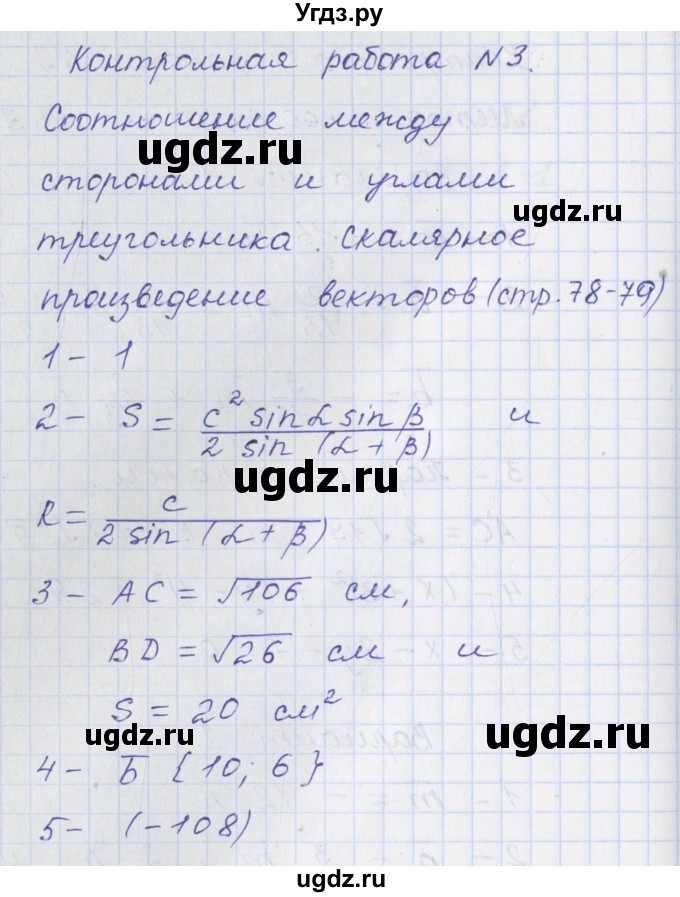 Угдз.ру
Контрольная работа N3.
Соотношение между
ugdz.ru
сторонами и углами
ugdz.ru
треугольника. Скалярное
произведение векторов (стр. 78-79)
1 - 1
2 - S = c² sin α sin β / 2 sin (α + β) и
ugdz.ru
R = c / 2 sin (α + β)
3 - AC = √106 см,
BD = √26 см и
S = 20 см²
ugdz.ru
ugdz.ru
4 - Б {10; 6}
5 - (-108)
ugdz.ru